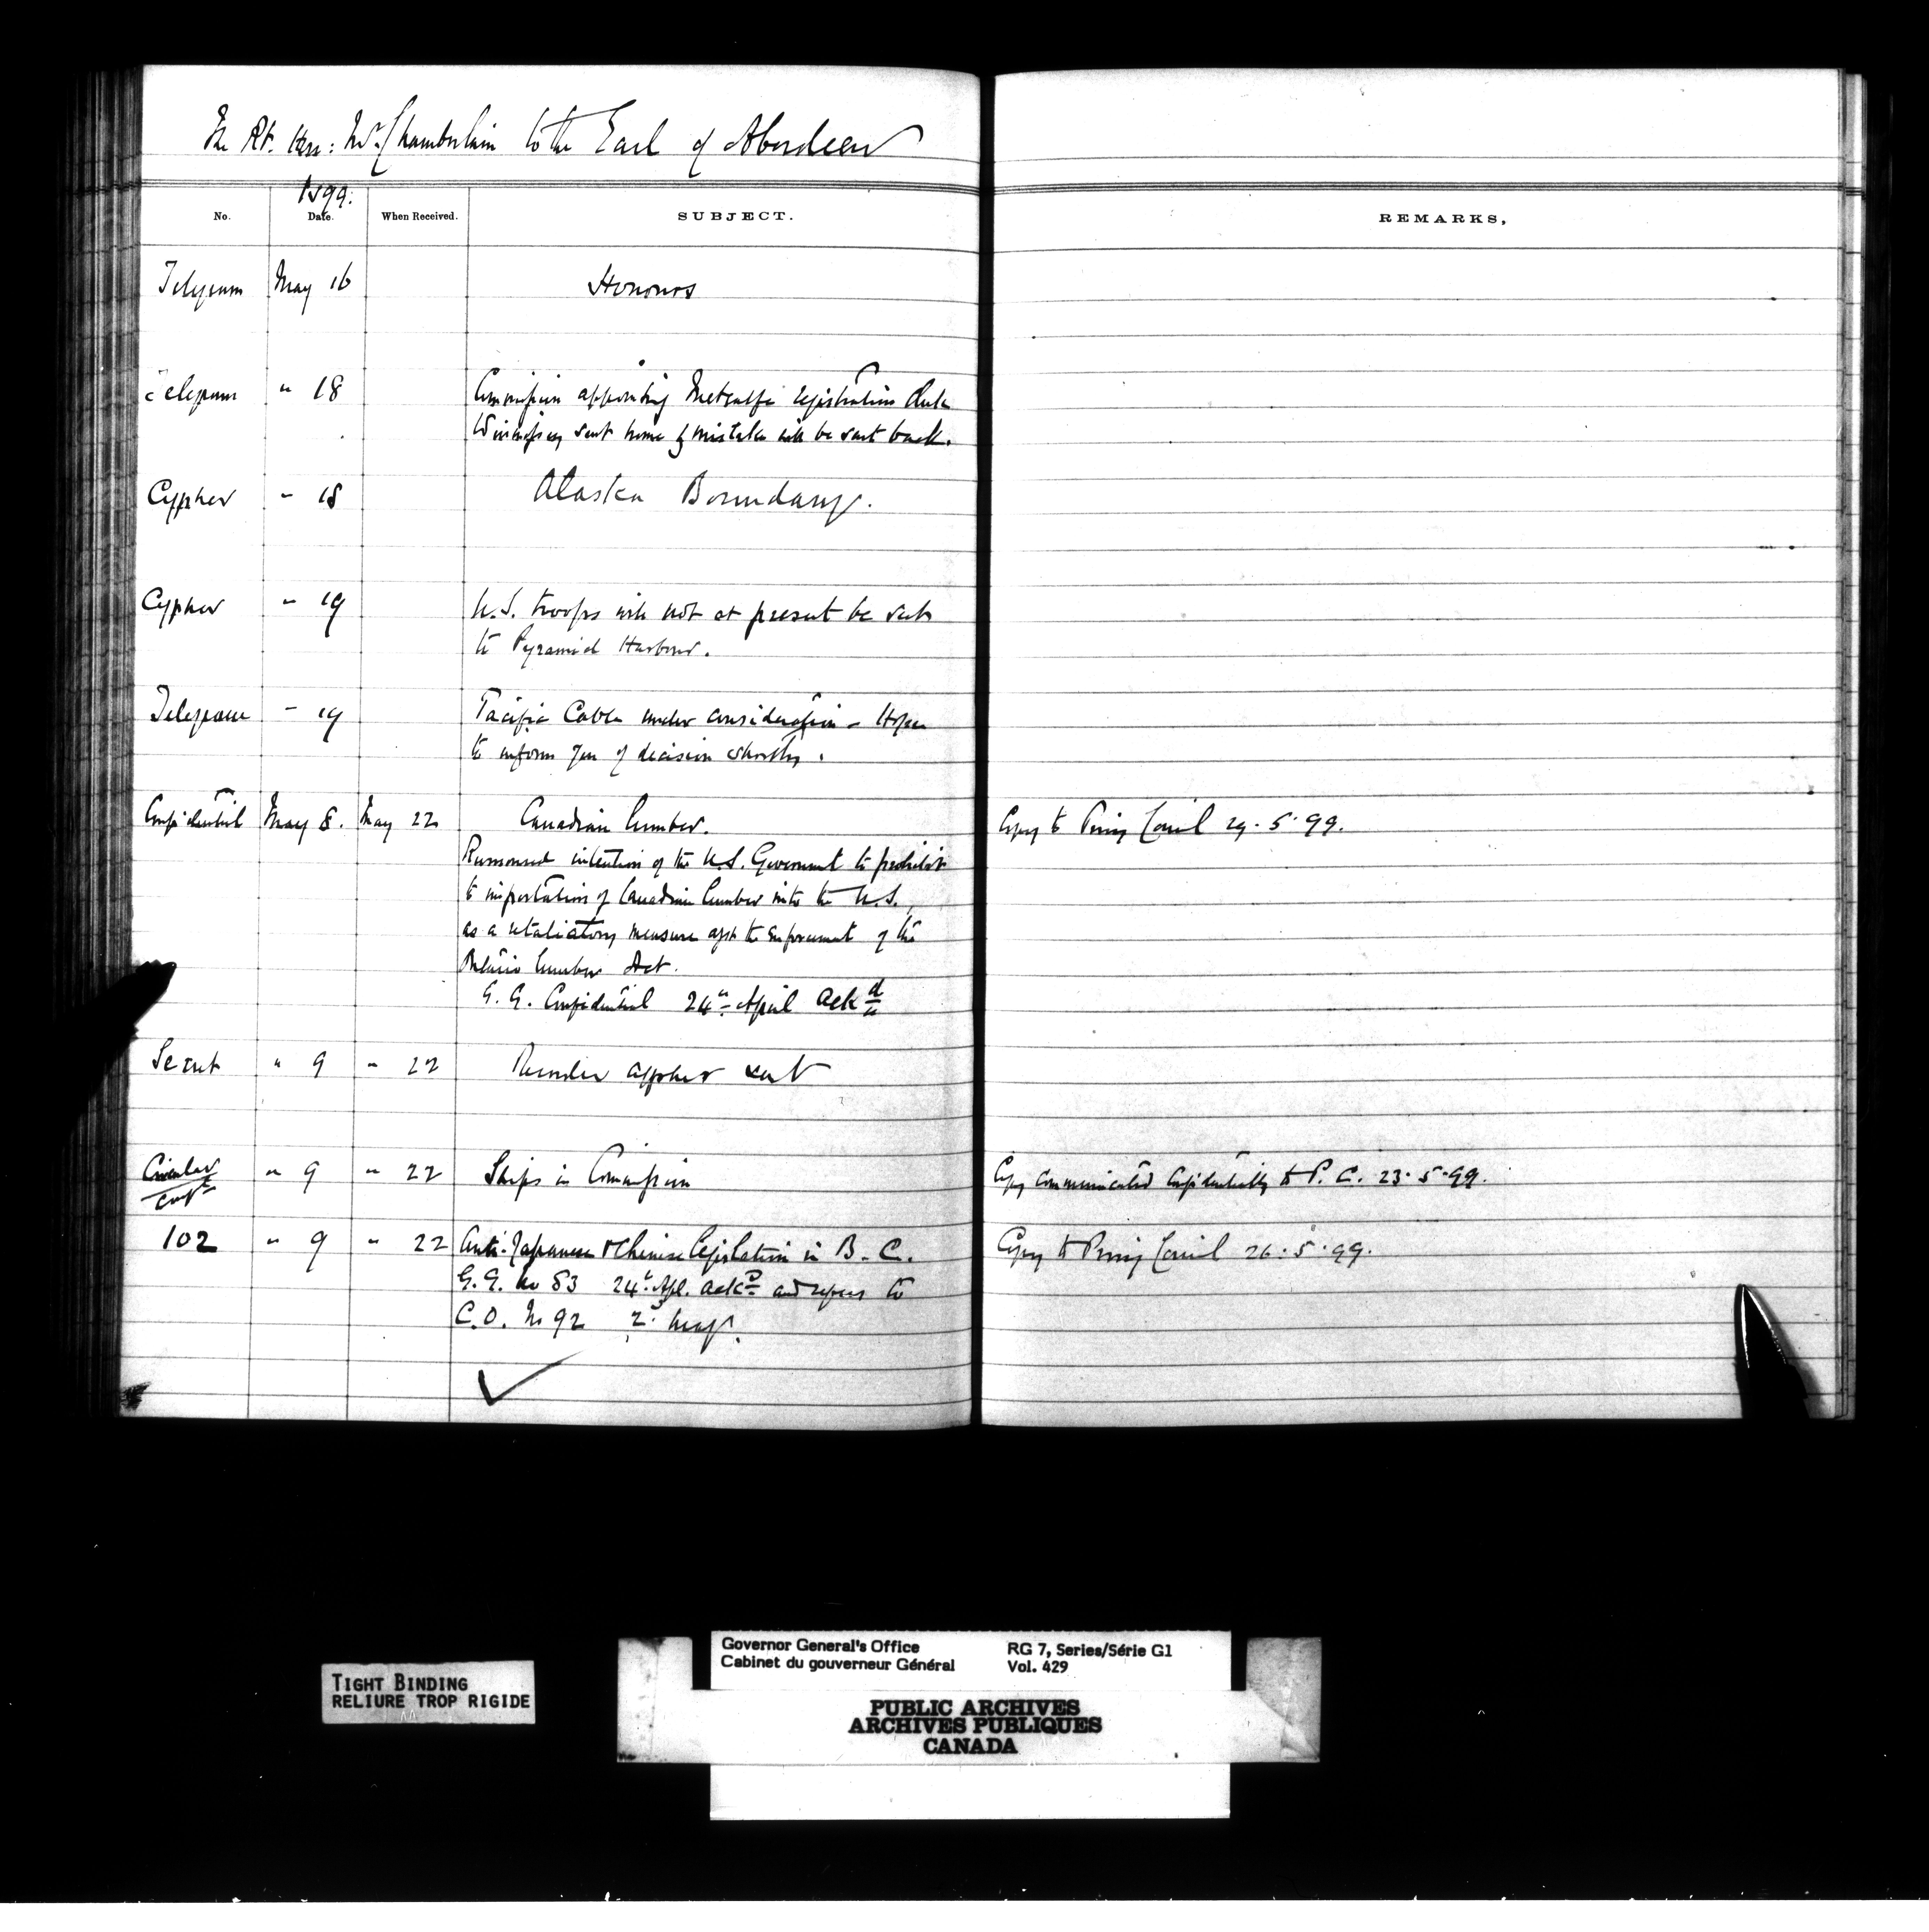 The Rt. Hon: Mr. Chamberlain to the Earl of Aberdeen
1899.
No. Date. When Received. SUBJECT. REMARKS,
Telegram May 16 Honours
Telegram " 18 Commission appointing Metcalfe registration Clerk
Winnipeg sent home by mistake will be sent back.
Cypher " 18 Alaska Boundary.
Cypher " 19 U.S. troops will not at present be sent
to Pyramid Harbour.
Telegram " 19 Pacific Cable under consideration - Hope
to inform you of decision shortly.
Confidential May 8. May 22 Canadian lumber. Copy to Privy Council 29.5.99.
Rumoured intention of the U.S. Government to prohibit
to importation of Canadian lumber into the U.S.,
as a retaliatory measure agst the enforcement of the
Ontario lumber Act.
G. G. Confidential 24th April Ackd
Secret " 9 " 22 cypher sent
Circular " 9 " 22 Ships in Commission Copy communicated confidentially to P. C. 23.5.99.
Conf
102 " 9 " 22 Anti-Japanese & Chinese legislation in B.C. Copy to Privy Council 26.5.99.
G.G. No 83 24t. Apl. ackd and refers to
C.O. No 92 2d. May.
TIGHT BINDING
RELIURE TROP RIGIDE
Governor General's Office RG 7, Series/Série G1
Cabinet du gouverneur Général Vol. 429
PUBLIC ARCHIVES
ARCHIVES PUBLIQUES
CANADA